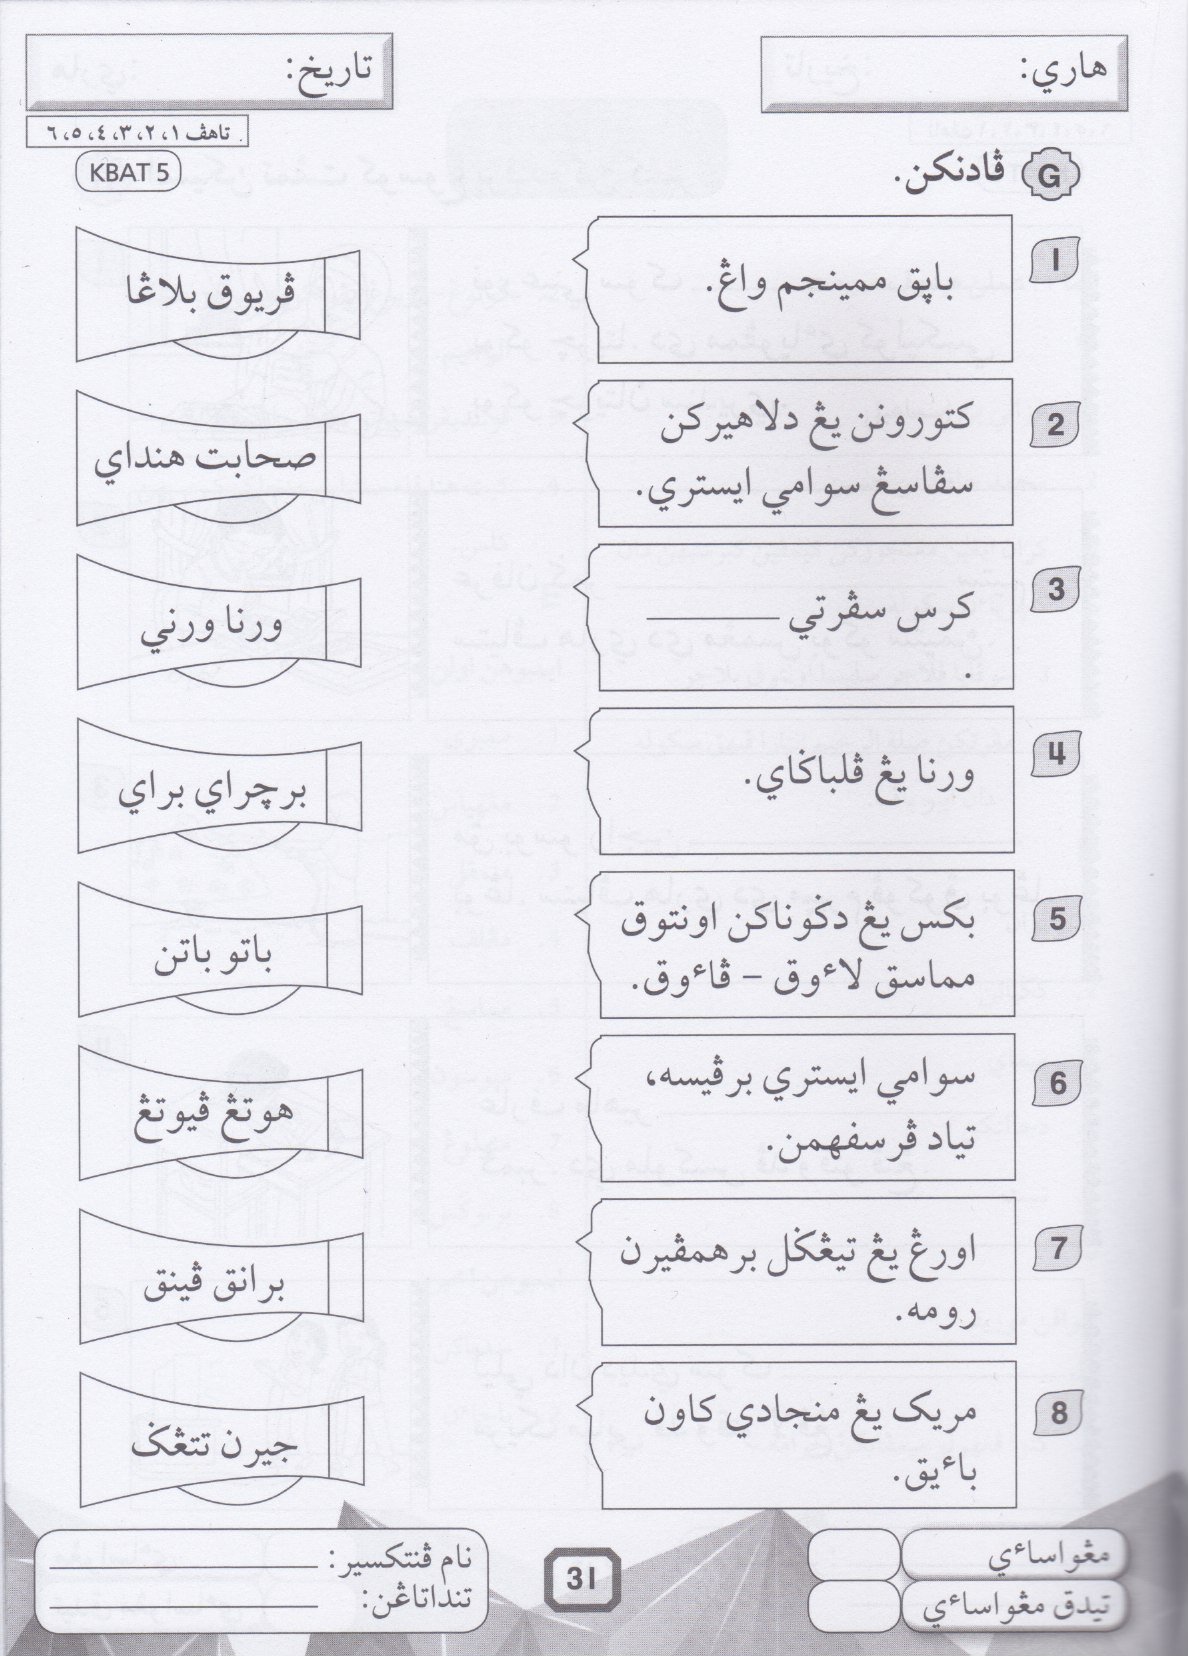 هاري:
تاريخ:
تاهڤ ١، ٢، ٣، ٤، ٥، ٦
KBAT 5
G ڤادنکن.
1
باڽق ممينجم واڠ.
ڤريوق بلاڠا
2
کتورونن يڠ دلاهيرکن
سڤاسڠ سوامي ايستري.
صحابت هنداي
3
کرس سڤرتي ________
.
ورنا ورني
4
ورنا يڠ ڤلباݢاي.
برچراي براي
5
بکس يڠ دݢوناکن اونتوق
مماسق لاءوق – ڤاءوق.
باتو باتن
6
سوامي ايستري برڤيسه،
تياد ڤرسفهمن.
هوتڠ ڤيوتڠ
7
اورڠ يڠ تيڠݢل برهمڤيرن
رومه.
برانق ڤينق
8
مريک يڠ منجادي کاون
باءيق.
جيرن تتڠݢ
مڠواساءي
تيدق مڠواساءي
31
نام ڤنتکسير: ________
تنداتاڠن: ________